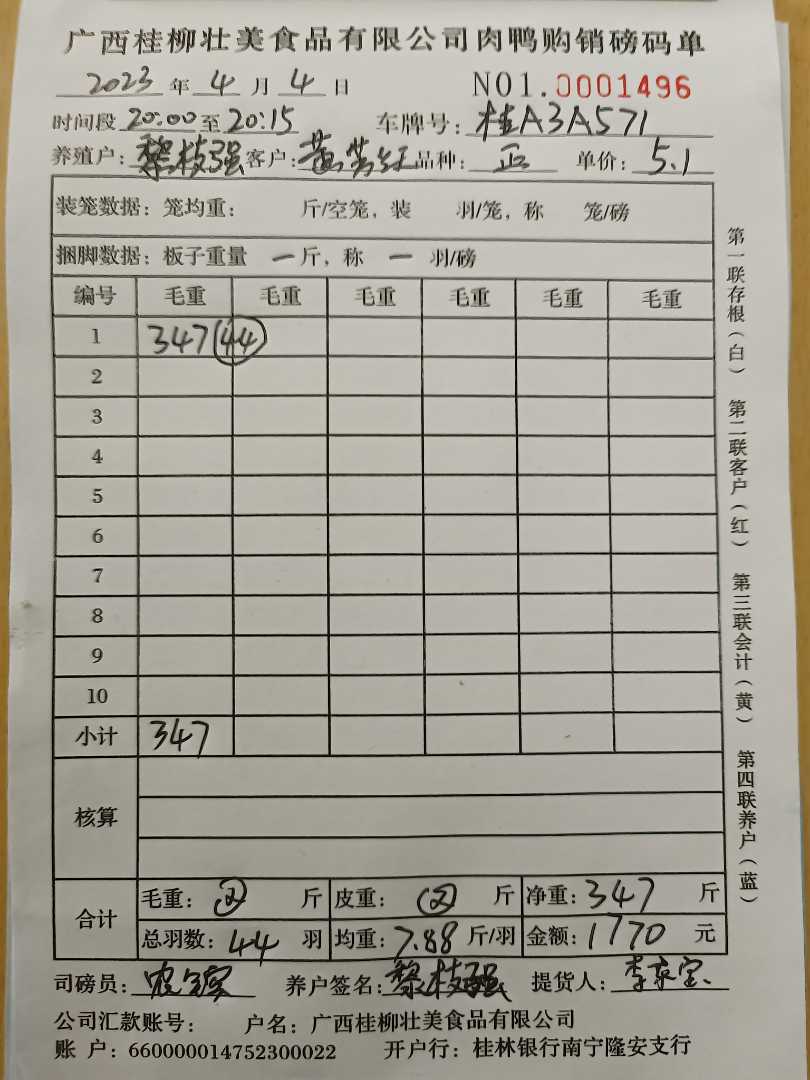 广西桂柳壮美食品有限公司肉鸭购销磅码单
2023 年 4 月 4 日 NO1.0001496
时间段 20:00 至 20:15 车牌号: 桂A3A571
养殖户: 黎枝强 客户: 黄 品种: 正 单价: 5.1
装笼数据: 笼均重: 斤/空笼, 装 羽/笼, 称 笼/磅
捆脚数据: 板子重量 一 斤, 称 一 羽/磅
编号 毛重 毛重 毛重 毛重 毛重 毛重
1 347 (44)
2
3
4
5
6
7
8
9
10
小计 347
核算
合计 毛重: 斤 皮重: 斤 净重: 347 斤
总羽数: 44 羽 均重: 7.88 斤/羽 金额: 1770 元
司磅员: 养户签名: 黎枝强 提货人: 李
公司汇款账号: 户名: 广西桂柳壮美食品有限公司
账 户: 660000014752300022 开户行: 桂林银行南宁隆安支行
第一联存根(白) 第二联客户(红) 第三联会计(黄) 第四联养户(蓝)